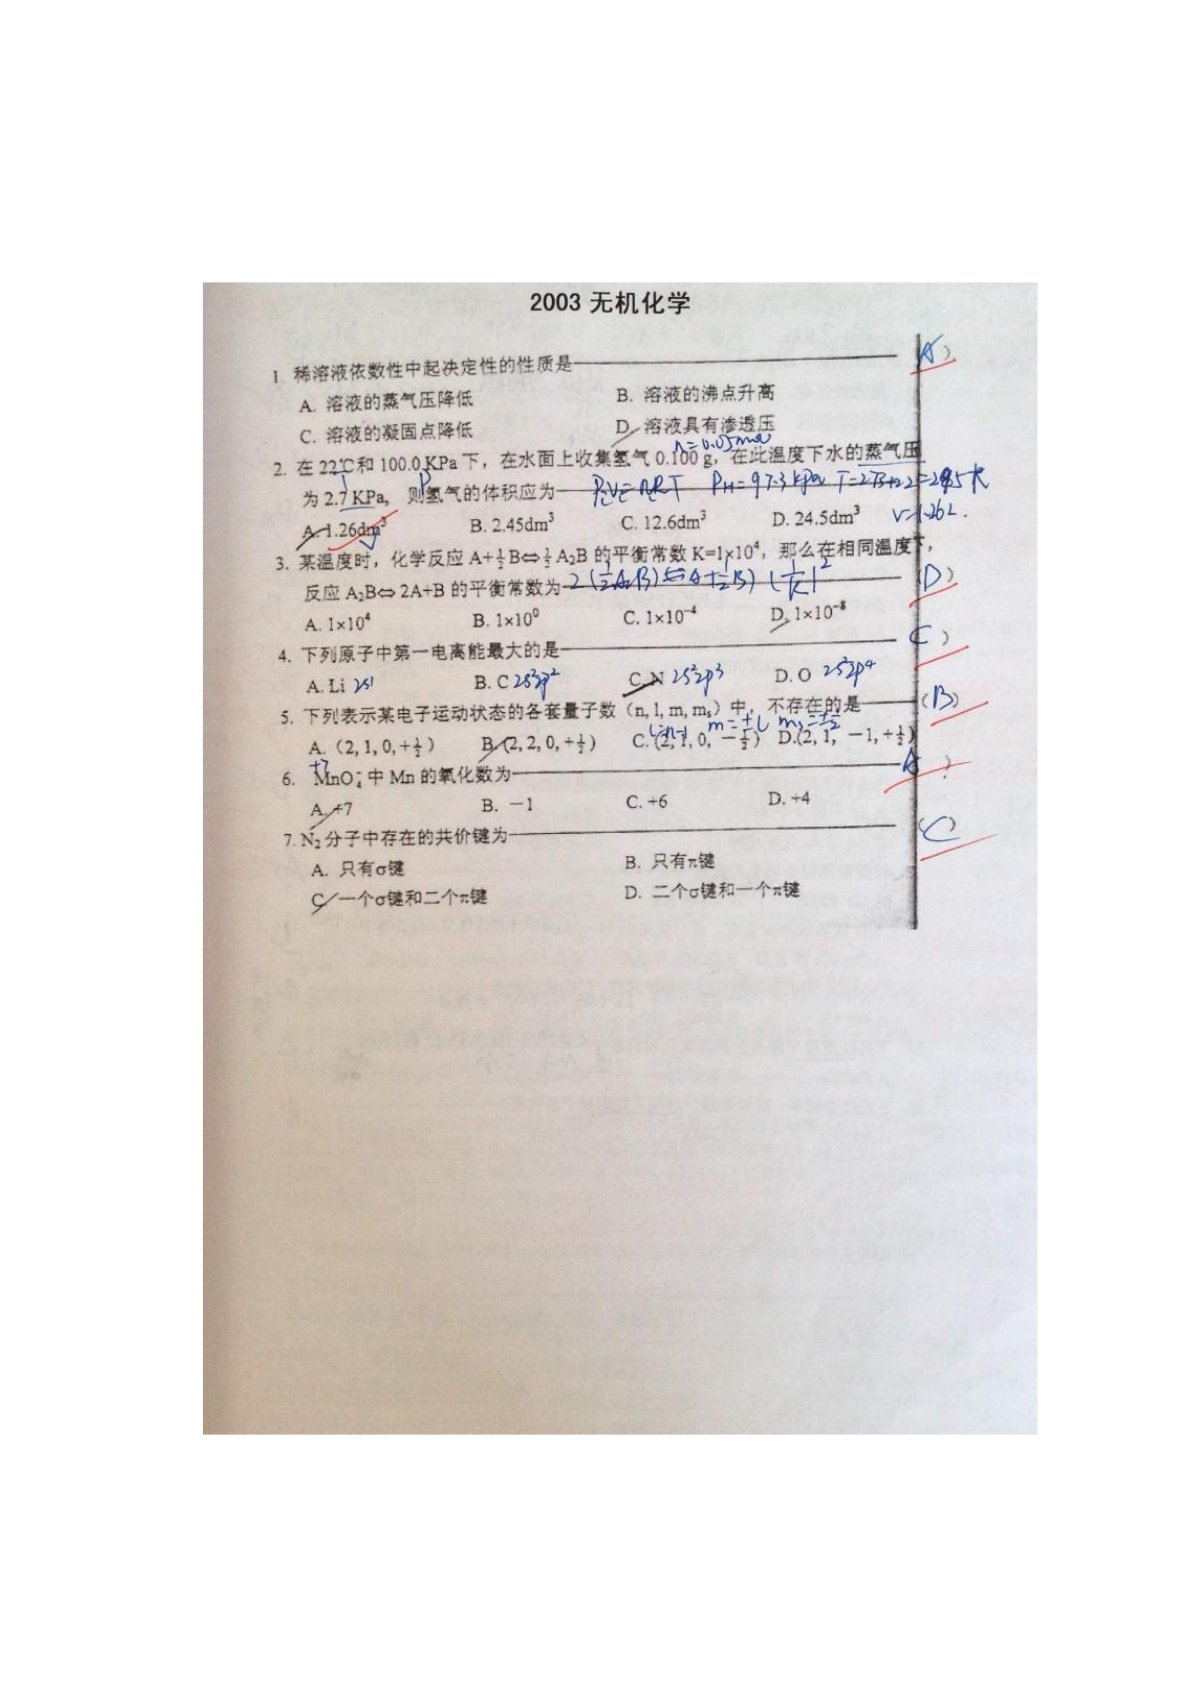 2003 无机化学
1. 稀溶液依数性中起决定性的性质是 A)
A. 溶液的蒸气压降低 B. 溶液的沸点升高
C. 溶液的凝固点降低 D. 溶液具有渗透压
n=0.05mol
2. 在22℃和 100.0 KPa 下，在水面上收集氢气 0.100 g，在此温度下水的蒸气压
为 2.7 KPa， 则氢气的体积应为 PV=nRT PH=97.3kPa T=273+22=295K
A. 1.26dm³ B. 2.45dm³ C. 12.6dm³ D. 24.5dm³ V=1.26L.
3. 某温度时，化学反应 A+½B⇔½A₂B 的平衡常数 K=1×10⁴，那么在相同温度下，
反应 A₂B⇔ 2A+B 的平衡常数为 2(½A₂B)⇔A+½B) (1/K)² (D)
A. 1×10⁴ B. 1×10⁰ C. 1×10⁻⁴ D. 1×10⁻⁸
4. 下列原子中第一电离能最大的是 C)
A. Li 2s¹ B. C 2s²2p² C. N 2s²2p³ D. O 2s²2p⁴
5. 下列表示某电子运动状态的各套量子数（n, l, m, mₛ）中，不存在的是 (B)
m=±l mₛ=±½
A.（2, 1, 0, +½） B.(2, 2, 0, +½) C. (2, 1, 0, －½) D.(2, 1, －1, +½)
+7
6. MnO₄⁻ 中 Mn 的氧化数为 A )
A. +7 B. －1 C. +6 D. +4
7. N₂ 分子中存在的共价键为 (C)
A. 只有σ键 B. 只有π键
C. 一个σ键和二个π键 D. 二个σ键和一个π键